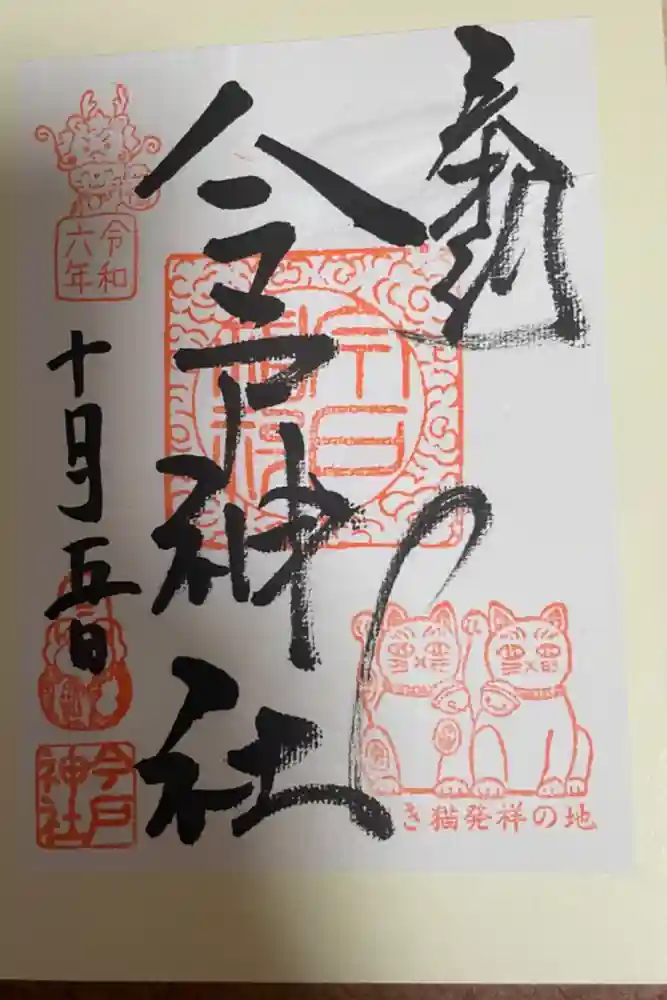 奉拝
今戸神社
令和
六年
十月五日
今戸
神社
き猫発祥の地